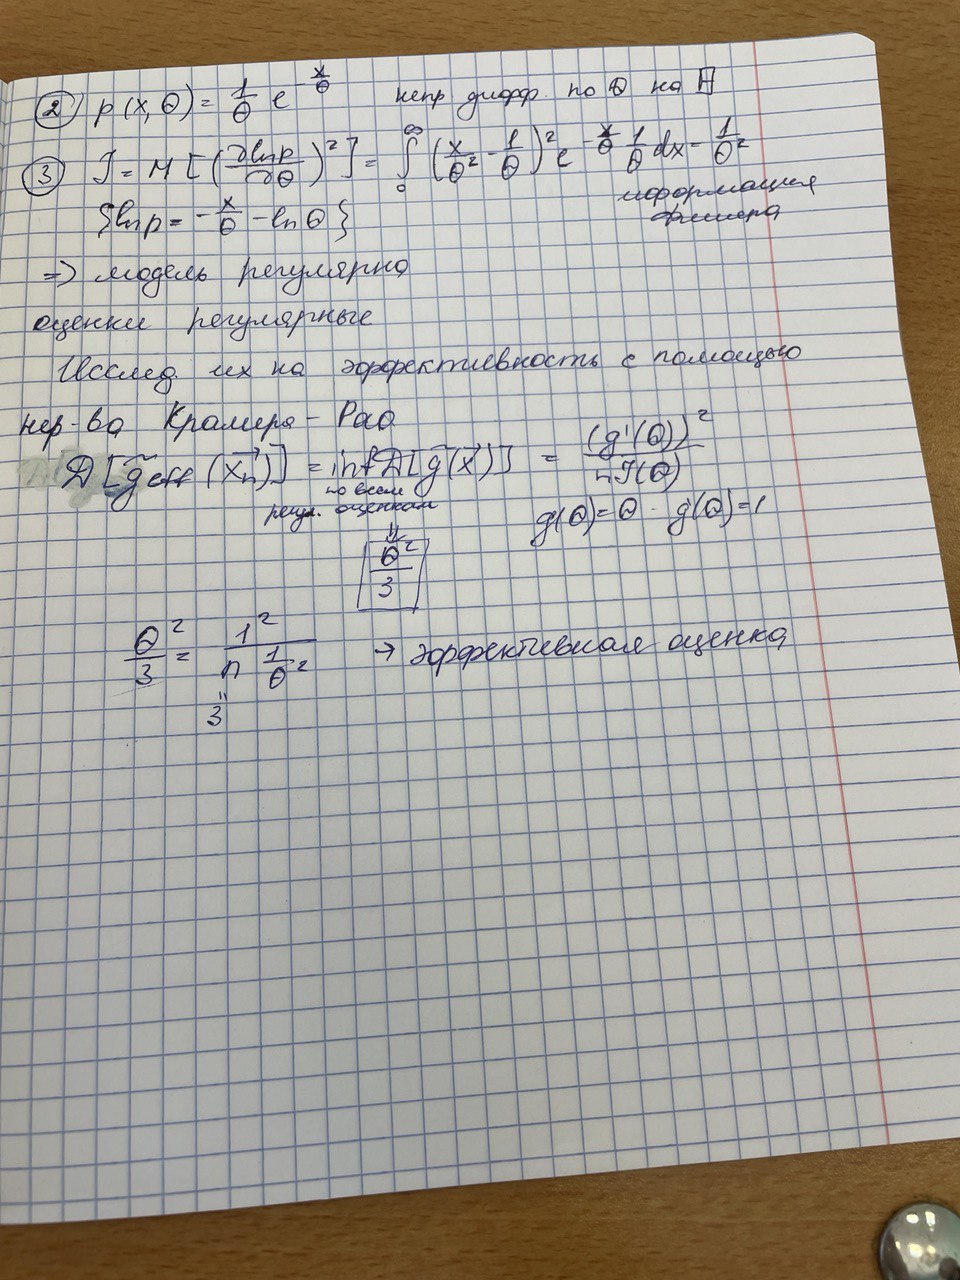 ② p(x,θ) = 1/θ e^(-x/θ) непр дифф. по θ на Ⓗ
③ J = M[(∂lnp/∂θ)²] = ∫₀^∞ (x/θ² - 1/θ)² e^(-x/θ) 1/θ dx = 1/θ²
{lnp = -x/θ - lnθ} информация
фишера
=> модель регулярна
оценки регулярные
Исслед. их на эффективность с помощью
нер-ва Крамера-Рао
D[g̃eff(x⃗n)] = inf D[g̃(x⃗)] = (g'(θ))²/nJ(θ)
по всем
регул. оценкам g(θ)=θ · g'(θ)=1
||
θ²/3
θ²/3 = 1²/(n 1/θ²) → эффективная оценка
||
3